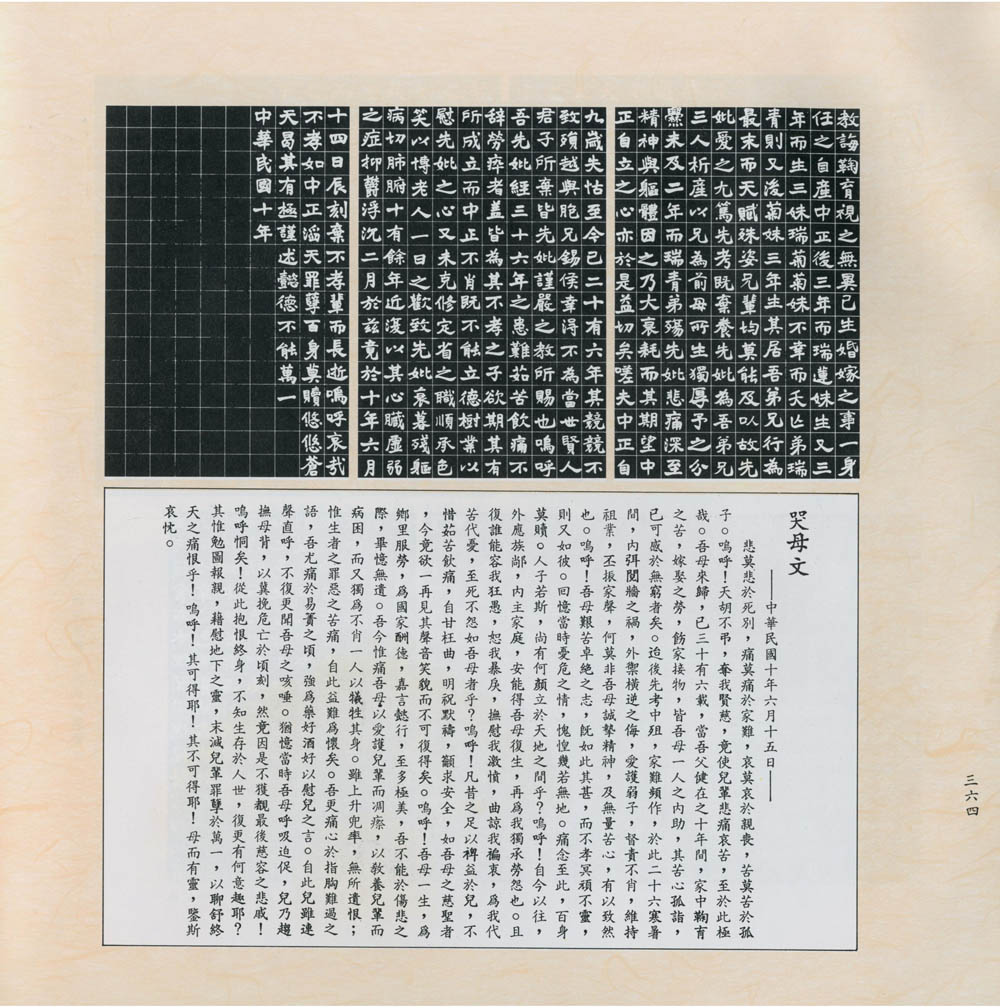 教誨鞠育視之無異己生婚嫁之事一身
任之自產中正後三年而瑞蓮妹生又三
年而生三妹瑞菊菊妹不幸而夭亾弟瑞
青則又後菊妹三年生其居吾弟兄行為
最末而天賦殊姿兄輩均莫能及以故先
妣愛之尤篤先考既棄養先妣為吾弟兄
三人析產以兄為前母所生獨厚予之分
爨未及二年而瑞青弟殤先妣悲痛深至
精神與軀體因之乃大衰耗而其期望中
正自立之心亦於是益切矣嗟夫中正自
九歲失怙至今已二十有六年其兢兢不
致殞越與胞兄錫侯幸得不為當世賢人
君子所棄皆先妣謹嚴之教所賜也嗚呼
吾先妣經三十六年之患難茹苦飲痛不
辭勞瘁者蓋皆為其不孝之子欲期其有
所成立而中正不肖既不能立德樹業以
慰先妣之心又未克修定省之職順承色
笑以博老人一日之歡致先妣衰暮殘軀
病切肺腑十有餘年近復以其心臟虛弱
之症抑鬱浮沉二月於茲竟於十年六月
十四日辰刻棄不孝輩而長逝嗚呼哀哉
不孝如中正滔天罪孽百身莫贖悠悠蒼
天曷其有極謹述懿德不能萬一
中華民國十年
哭母文
——中華民國十年六月十五日——
悲莫悲於死別，痛莫痛於家難，哀莫哀於親喪，苦莫苦於孤
子。嗚呼！天胡不弔，奪我賢慈，竟使兒輩悲痛哀苦，至於此極
哉。吾母來歸，已三十有六載，當吾父健在之十年間，家中鞠育
之苦，嫁娶之勞，飭家接物，皆吾母一人之內助，其苦心孤詣，
已可感於無窮者矣。迨後先考中殂，家難頻作，於此二十六寒暑
間，內弭閱牆之禍，外禦橫逆之侮，愛護弱子，督責不肖，維持
祖業，丕振家聲，何莫非吾母誠摯精神，及無量苦心，有以致然
也。嗚呼！吾母艱苦卓絕之志，既如此其甚，而不孝冥頑不靈，
則又如彼。回憶當時憂危之情，愧惶幾若無地。痛念至此，百身
莫贖。人子若斯，尚有何顏立於天地之間乎？嗚呼！自今以往，
外應族鄰，內主家庭，安能得吾母復生，再為我獨承勞怨也。且
復誰能容我狂愚，恕我暴戾，撫慰我激憤，曲諒我褊衷，為我代
苦代憂，至死不怨如吾母者乎？嗚呼！凡昔之足以裨益於兒，不
惜茹苦飲痛，自甘枉曲，明祝默禱，籲求安全，如吾母之慈聖者
，今竟欲一再見其聲音笑貌而不可復得矣。嗚呼！吾母一生，為
鄉里服勞，為國家酬德，嘉言懿行，至多極美，吾不能於傷悲之
際，畢憶無遺。吾今惟痛吾母以愛護兒輩而凋瘵，以教養兒輩而
病困，而又獨為不肖一人以犧牲其身。雖上升兜率，無所遺恨；
惟生者之罪惡之苦痛，自此益難為懷矣。吾更痛心於指胸難過之
語，吾尤痛於易簀之頃，強為藥好酒好以慰兒之言。自此兒雖連
聲直呼，不復更聞吾母之咳唾。猶憶當時吾母呼吸迫促，兒乃趨
撫母背，以冀挽危亡於頃刻，然竟因是不獲覩最後慈容之悲戚！
嗚呼恫矣！從此抱恨終身，不知生存於人世，復更有何意趣耶？
其惟勉圖報親，藉慰地下之靈，末減兒輩罪孽於萬一，以聊舒終
天之痛恨乎！嗚呼！其可得耶！其不可得耶！母而有靈，鑒斯
哀忱。
三六四